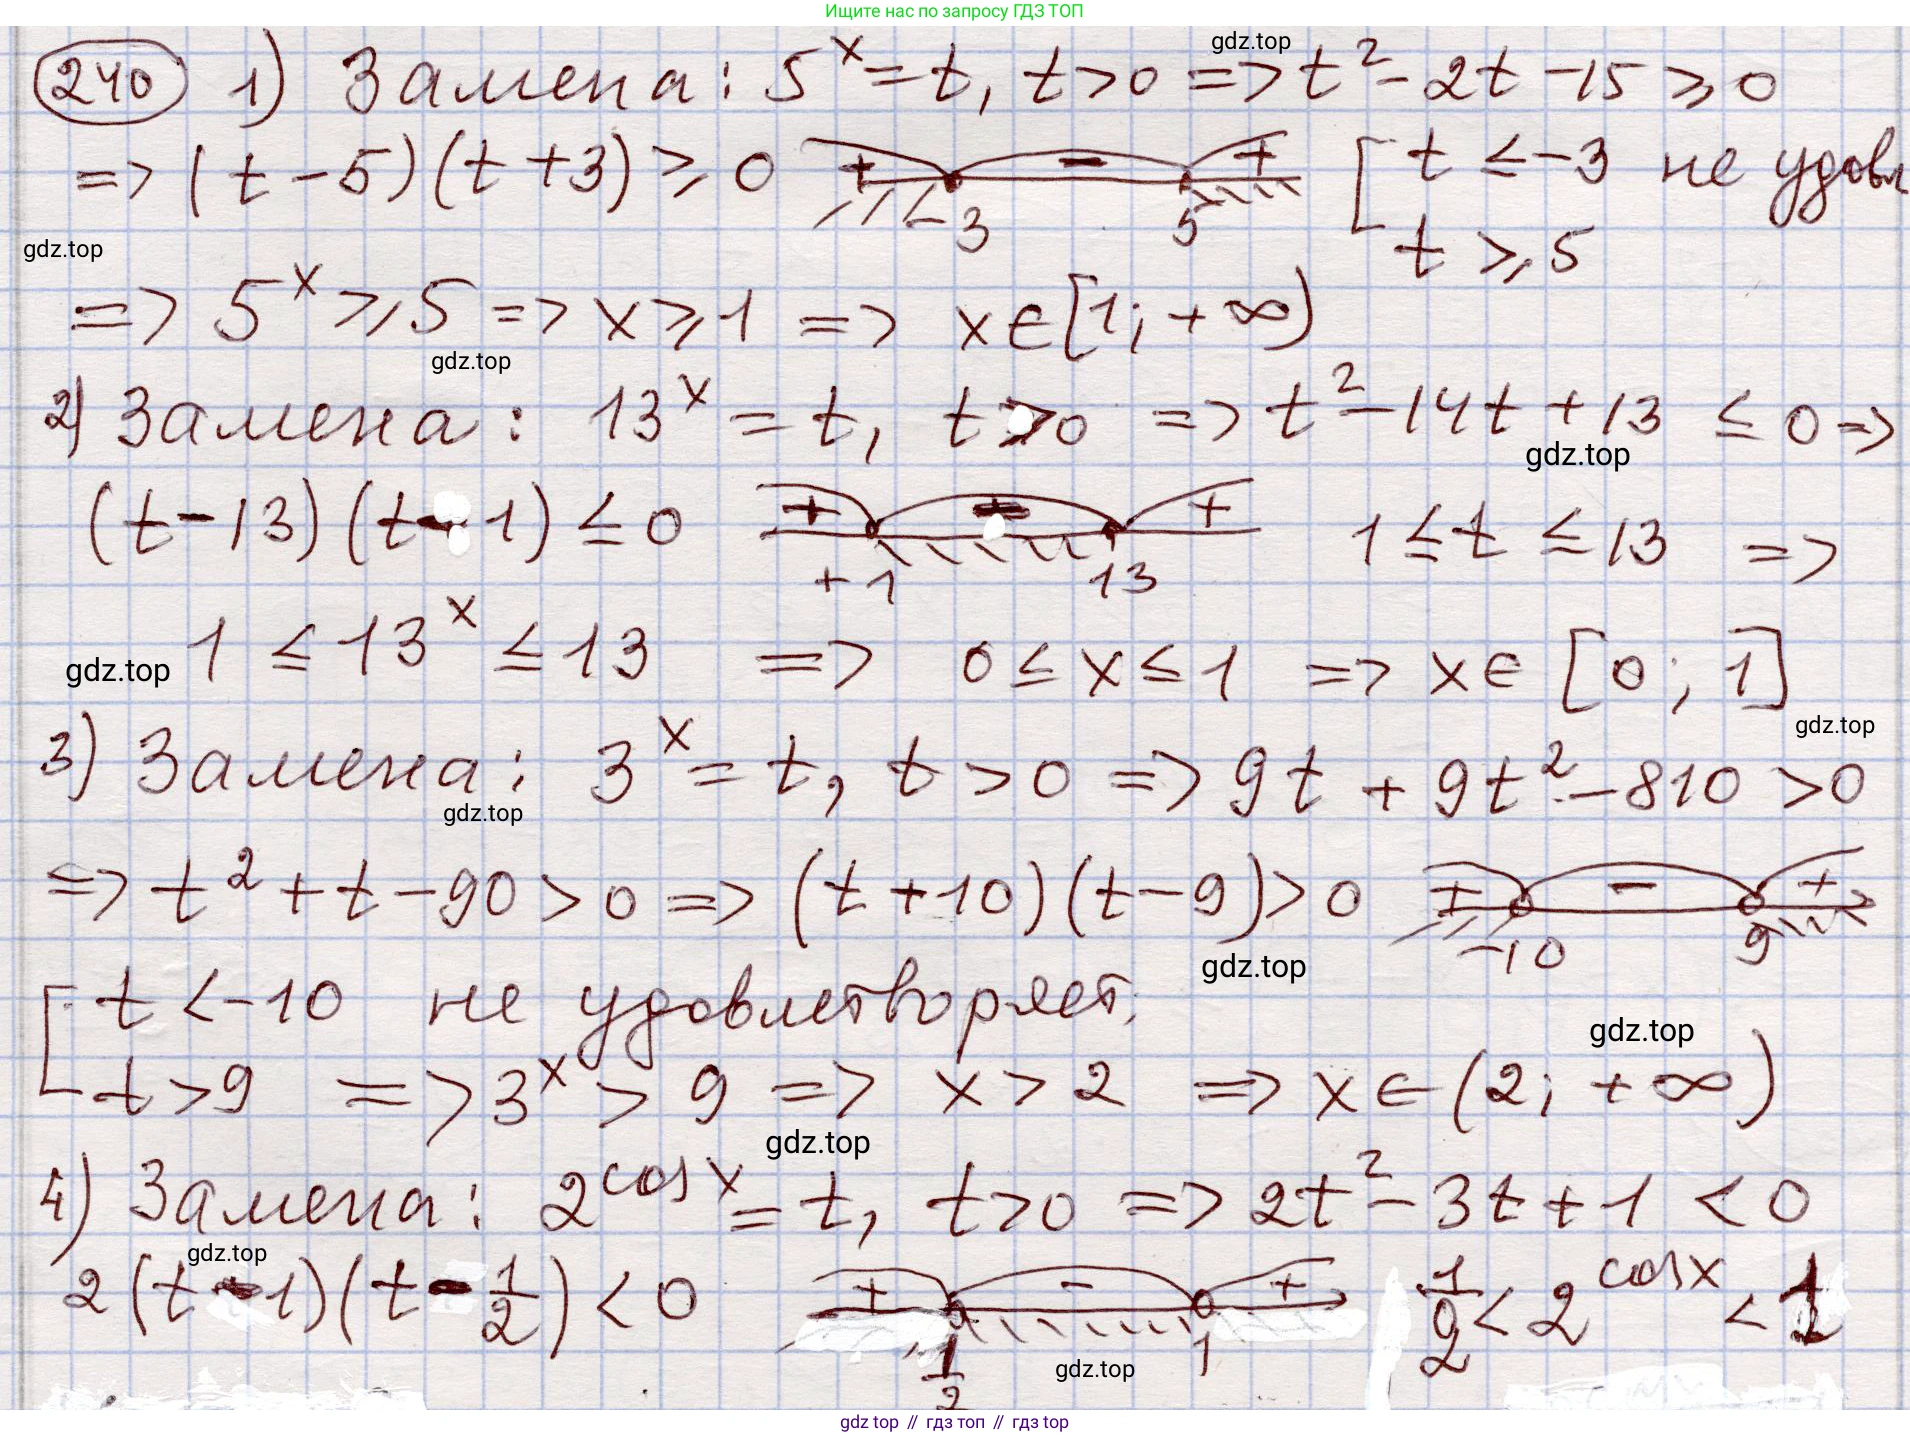 Ищите нас по запросу ГДЗ ТОП
240 1) Замена: 5^x = t, t > 0 => t^2 - 2t - 15 ≥ 0
gdz.top
=> (t - 5)(t + 3) ≥ 0 + - + -3 5 [ t ≤ -3 не удовл
t ≥ 5
gdz.top
=> 5^x ≥ 5 => x ≥ 1 => x ∈ [1; +∞)
gdz.top
2) Замена: 13^x = t, t > 0 => t^2 - 14t + 13 ≤ 0 =>
gdz.top
(t - 13)(t - 1) ≤ 0 + - + +1 13 1 ≤ t ≤ 13 =>
1 ≤ 13^x ≤ 13 => 0 ≤ x ≤ 1 => x ∈ [0; 1]
gdz.top
gdz.top
3) Замена: 3^x = t, t > 0 => 9t + 9t^2 - 810 > 0
gdz.top
=> t^2 + t - 90 > 0 => (t + 10)(t - 9) > 0 + - + -10 9
gdz.top
[ t < -10 не удовлетворяет;
gdz.top
t > 9 => 3^x > 9 => x > 2 => x ∈ (2; +∞)
gdz.top
4) Замена: 2^cos x = t, t > 0 => 2t^2 - 3t + 1 < 0
gdz.top
2(t - 1)(t - 1/2) < 0 + - + 1/2 1 1/2 < 2^cos x < 1
gdz.top
gdz top // гдз топ // гдз top